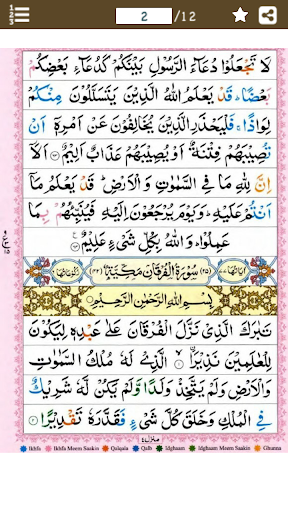 2 /12
لَا تَجْعَلُوْا دُعَآءَ الرَّسُوْلِ بَيْنَكُمْ كَدُعَآءِ بَعْضِكُمْ
بَعْضًا ؕ قَدْ يَعْلَمُ اللّٰهُ الَّذِيْنَ يَتَسَلَّلُوْنَ مِنْكُمْ
لِوَاذًا ۚ فَلْيَحْذَرِ الَّذِيْنَ يُخَالِفُوْنَ عَنْ اَمْرِهٖۤ اَنْ
تُصِيْبَهُمْ فِتْنَةٌ اَوْ يُصِيْبَهُمْ عَذَابٌ اَلِيْمٌ ۝ اَلَاۤ
اِنَّ لِلّٰهِ مَا فِى السَّمٰوٰتِ وَالْاَرْضِ ؕ قَدْ يَعْلَمُ مَاۤ
اَنْتُمْ عَلَيْهِ ؕ وَيَوْمَ يُرْجَعُوْنَ اِلَيْهِ فَيُنَبِّئُهُمْ بِمَا
عَمِلُوْا ؕ وَاللّٰهُ بِكُلِّ شَىْءٍ عَلِيْمٌ ۝
اٰيَاتُهَا ٧٧ (٢٥) سُوْرَةُ الْفُرْقَانِ مَكِّيَّةٌ (٤٢) رُكُوْعَاتُهَا ٦
بِسْمِ اللّٰهِ الرَّحْمٰنِ الرَّحِيْمِ
تَبٰرَكَ الَّذِىْ نَزَّلَ الْفُرْقَانَ عَلٰى عَبْدِهٖ لِيَكُوْنَ
لِلْعٰلَمِيْنَ نَذِيْرًا ۝ اۨلَّذِىْ لَهٗ مُلْكُ السَّمٰوٰتِ
وَالْاَرْضِ وَلَمْ يَتَّخِذْ وَلَدًا وَّلَمْ يَكُنْ لَّهٗ شَرِيْكٌ
فِى الْمُلْكِ وَخَلَقَ كُلَّ شَىْءٍ فَقَدَّرَهٗ تَقْدِيْرًا ۝
منزل ٤
Ikhfa Ikhfa Meem Saakin Qalqala Qalb Idghaam Idghaam Meem Saakin Ghunna